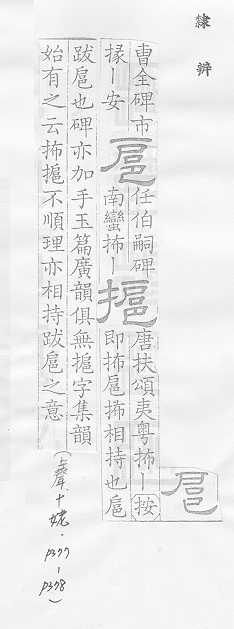 隸辨
扈
曹全碑市
掾丨安
扈
任伯嗣碑
南蠻抪丨
摢
唐扶頌夷粵抪丨按
即抪扈抪相持也扈
跋扈也碑亦加手玉篇廣韻俱無摢字集韻
始有之云抪摢不順理亦相持跋扈之意
(上聲十姥・P377-P378)